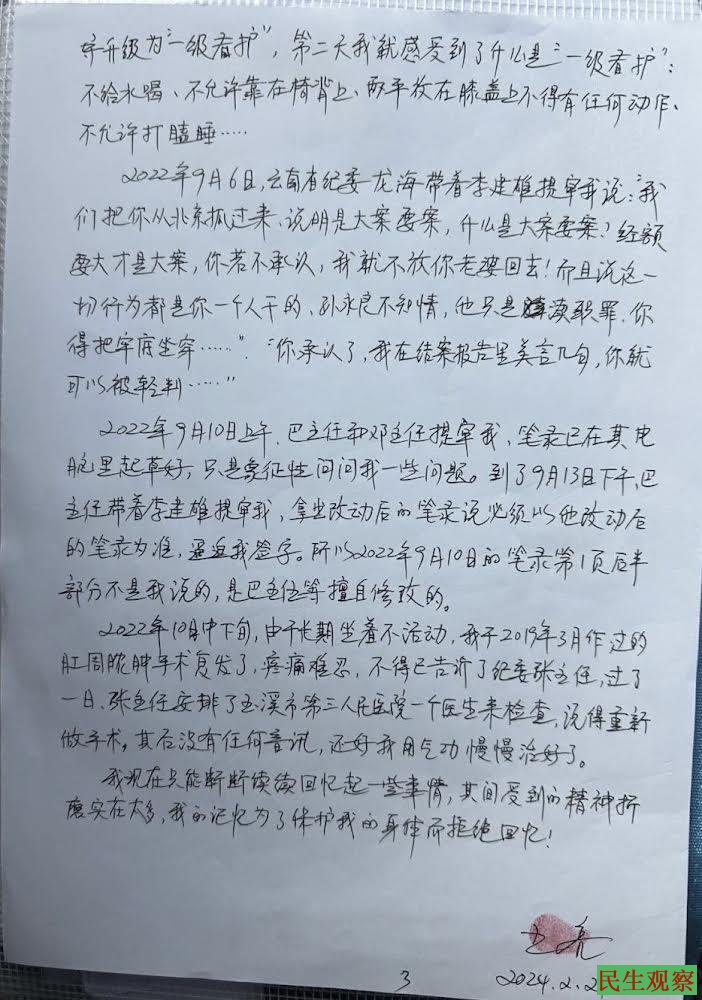 好升级为“一级看护”，第二天我就感受到了什么是“一级看护”：
不给水喝、不允许靠在椅背上、两手放在膝盖上不得有任何动作、
不允许打瞌睡……
2022年9月6日，云南省纪委龙海带着李建雄提审我说：“我
们把你从北京抓过来、说明是大案要案，什么是大案要案？经额
要大才是大案，你若不承认，我就不放你老婆回去！而且说这一
切行为都是你一个人干的、孙永良不知情，他只是渎职罪、你
得把牢底坐穿……”、“你承认了，我在结案报告里美言几句，你就
可以被轻判……”
2022年9月10日上午、巴主任和邓主任提审我、笔录已在其电
脑里起草好，只是象征性问问我一些问题。到了9月13日下午，巴
主任带着李建雄提审我，拿出改动后的笔录说必须以他改动后
的笔录为准，逼迫我签字。所以2022年9月10日的笔录第1页后半
部分不是我说的，是巴主任等擅自修改的。
2022年10月中下旬，由于长期坐着不活动，我于2019年3月作过的
肛周脓肿手术复发了，疼痛难忍，不得已告诉了纪委张主任，过了
一日、张主任安排了玉溪市第三人民医院一个医生来检查，说得重新
做手术，其后没有任何音讯，还好我用气功慢慢治好了。
我现在只能断断续续回忆起一些事情，其间受到的精神折
磨实在太多，我的记忆为了保护我的身体而拒绝回忆！
亮
3
2024.2.2
民生观察